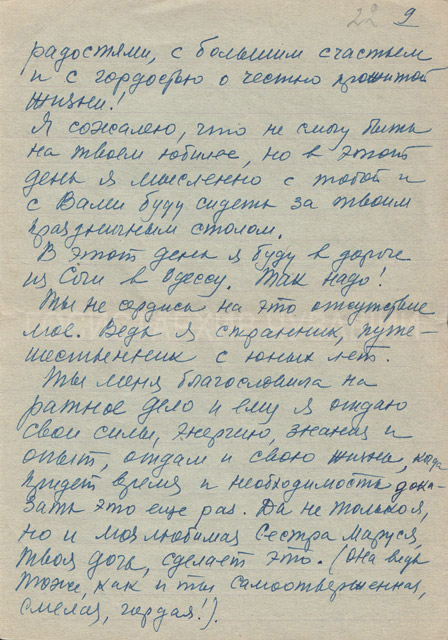 22 9
радостями, с большим счастьем
и с гордостью о честно прожитой
жизни!
Я сожалею, что не смогу быть
на твоем юбилее, но в этот
день я мысленно с тобой и
с Вами буду сидеть за твоим
праздничным столом.
В этот день я буду в дороге
из Сочи в Одессу. Так надо!
Ты не сердись на это отсутствие
мое. Ведь я странник, путе-
шественник с юных лет.
Ты меня благословила на
ратное дело и ему я отдаю
свои силы, энергию, знания и
опыт, отдам и свою жизнь, когда
придет время и необходимость дока-
зать это еще раз. Да не только я,
но и моя любимая Сестра Маруся,
твоя дочь, сделает это. (Она ведь
тоже, как и ты самоотверженная,
смелая, гордая!).